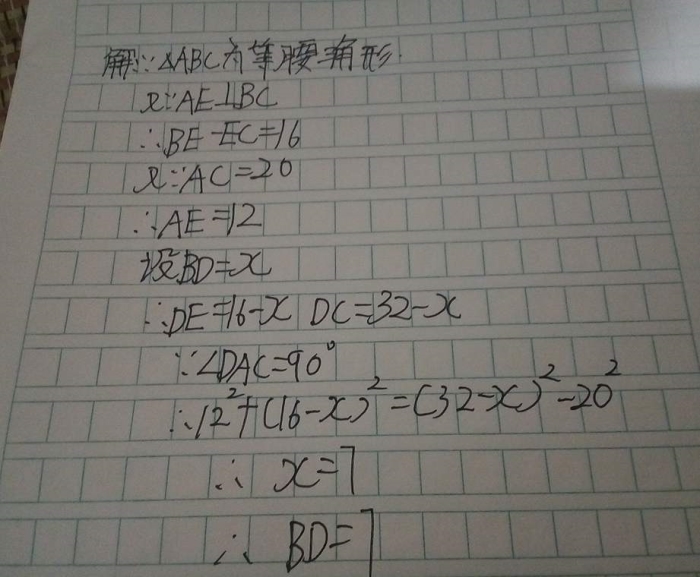 解:∵△ABC为等腰三角形.
又∵AE⊥BC
∴BE=EC=16
又∵AC=20
∴AE=12
设BD=x
∴DE=16-x DC=32-x
∵∠DAC=90°
∴12²+(16-x)²=(32-x)²-20²
∴ x=7
∴ BD=7